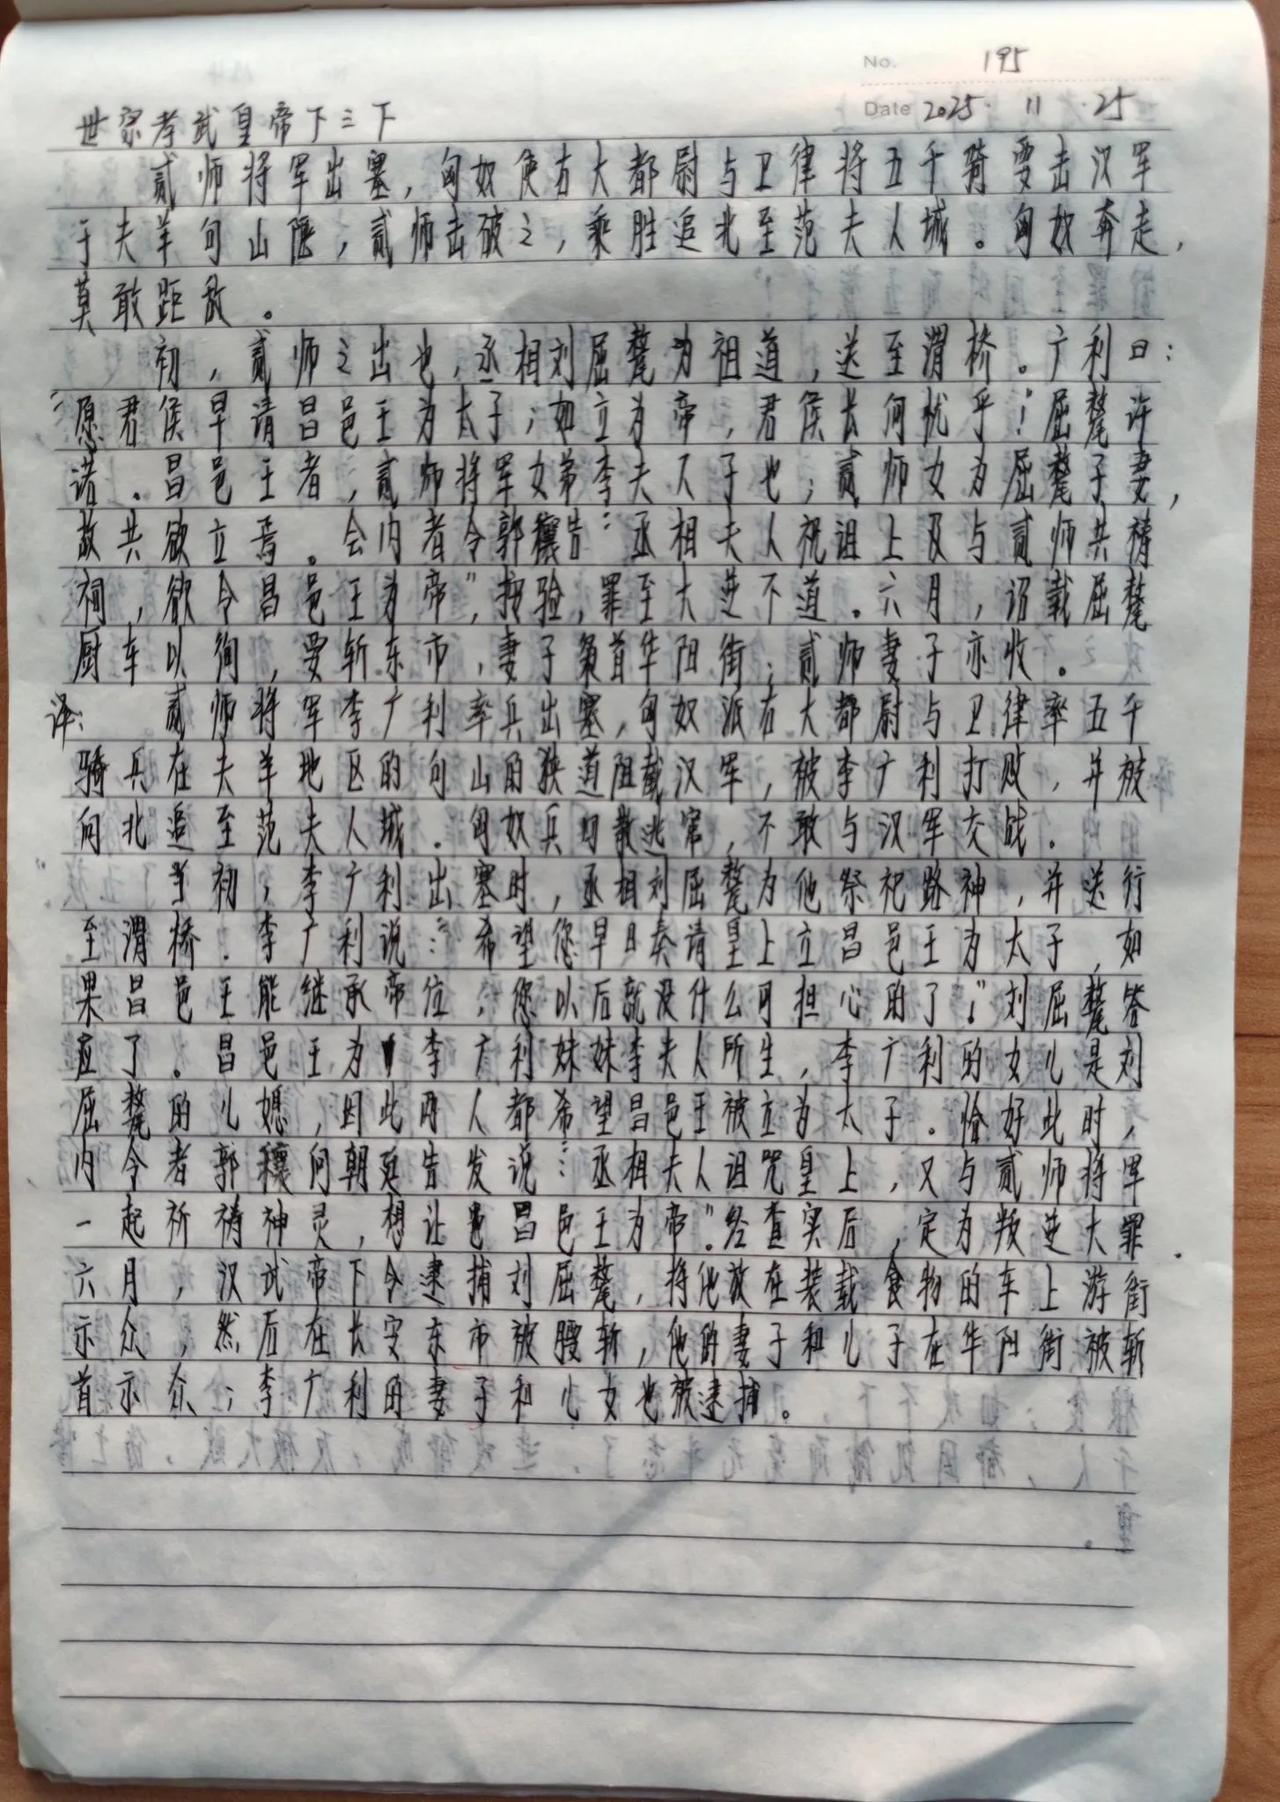 No. 195
Date 2025. 11. 25
世宗孝武皇帝下之下
贰师将军出塞，匈奴使右大都尉与卫律将五千骑要击汉军
于夫羊句山陿，贰师击破之，乘胜追北至范夫人城。匈奴奔走，
莫敢距敌。
初，贰师之出也，丞相刘屈氂为祖道，送至渭桥。广利曰：
“愿君侯早请昌邑王为太子；如立为帝，君侯长何忧乎！”屈氂许
诺。昌邑王者，贰师将军女弟李夫人子也；贰师女为屈氂子妻，
故共欲立焉。会内者令郭穰告：“丞相夫人祝诅上及与贰师共祷
祠，欲令昌邑王为帝”，按验，罪至大逆不道。六月，诏载屈氂
厨车以徇，要斩东市，妻子枭首华阳街；贰师妻子亦收。
译：贰师将军李广利率兵出塞，匈奴派右大都尉与卫律率五千
骑兵在夫羊地区的句山的狭道阻截汉军，被李广利打败，并被
向北追至范夫人城。匈奴兵四散逃窜，不敢与汉军交战。
当初，李广利出塞时，丞相刘屈氂为他祭祀路神，并送行
至渭桥。李广利说：“希望您早日奏请皇上立昌邑王为太子，如
果昌邑王能继承帝位，您以后就没什么可担心的了！”刘屈氂答
应了。昌邑王为李广利妹妹李夫人所生，李广利的女儿是刘
屈氂的儿媳，因此两人都希望昌邑王被立为太子。恰好此时，
内令者郭穰向朝廷告发说：“丞相夫人诅咒皇上，又与贰师将军
一起祈祷神灵，想让昌邑王为帝”。经查实后，定为叛逆大罪。
六月，汉武帝下令逮捕刘屈氂，将他放在装载食物的车上游街
示众，然后在长安东市被腰斩，他的妻子和儿子在华阳街被斩
首示众；李广利的妻子和儿女也被逮捕。